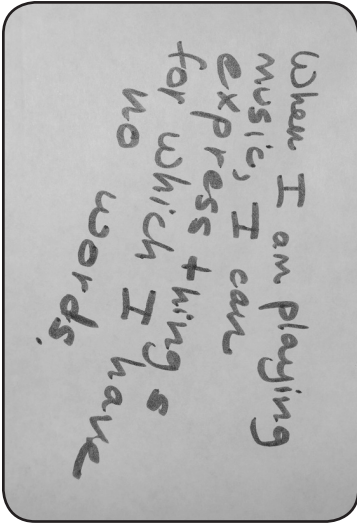 When I am playing
music, I can
express things
for which I have
no words.